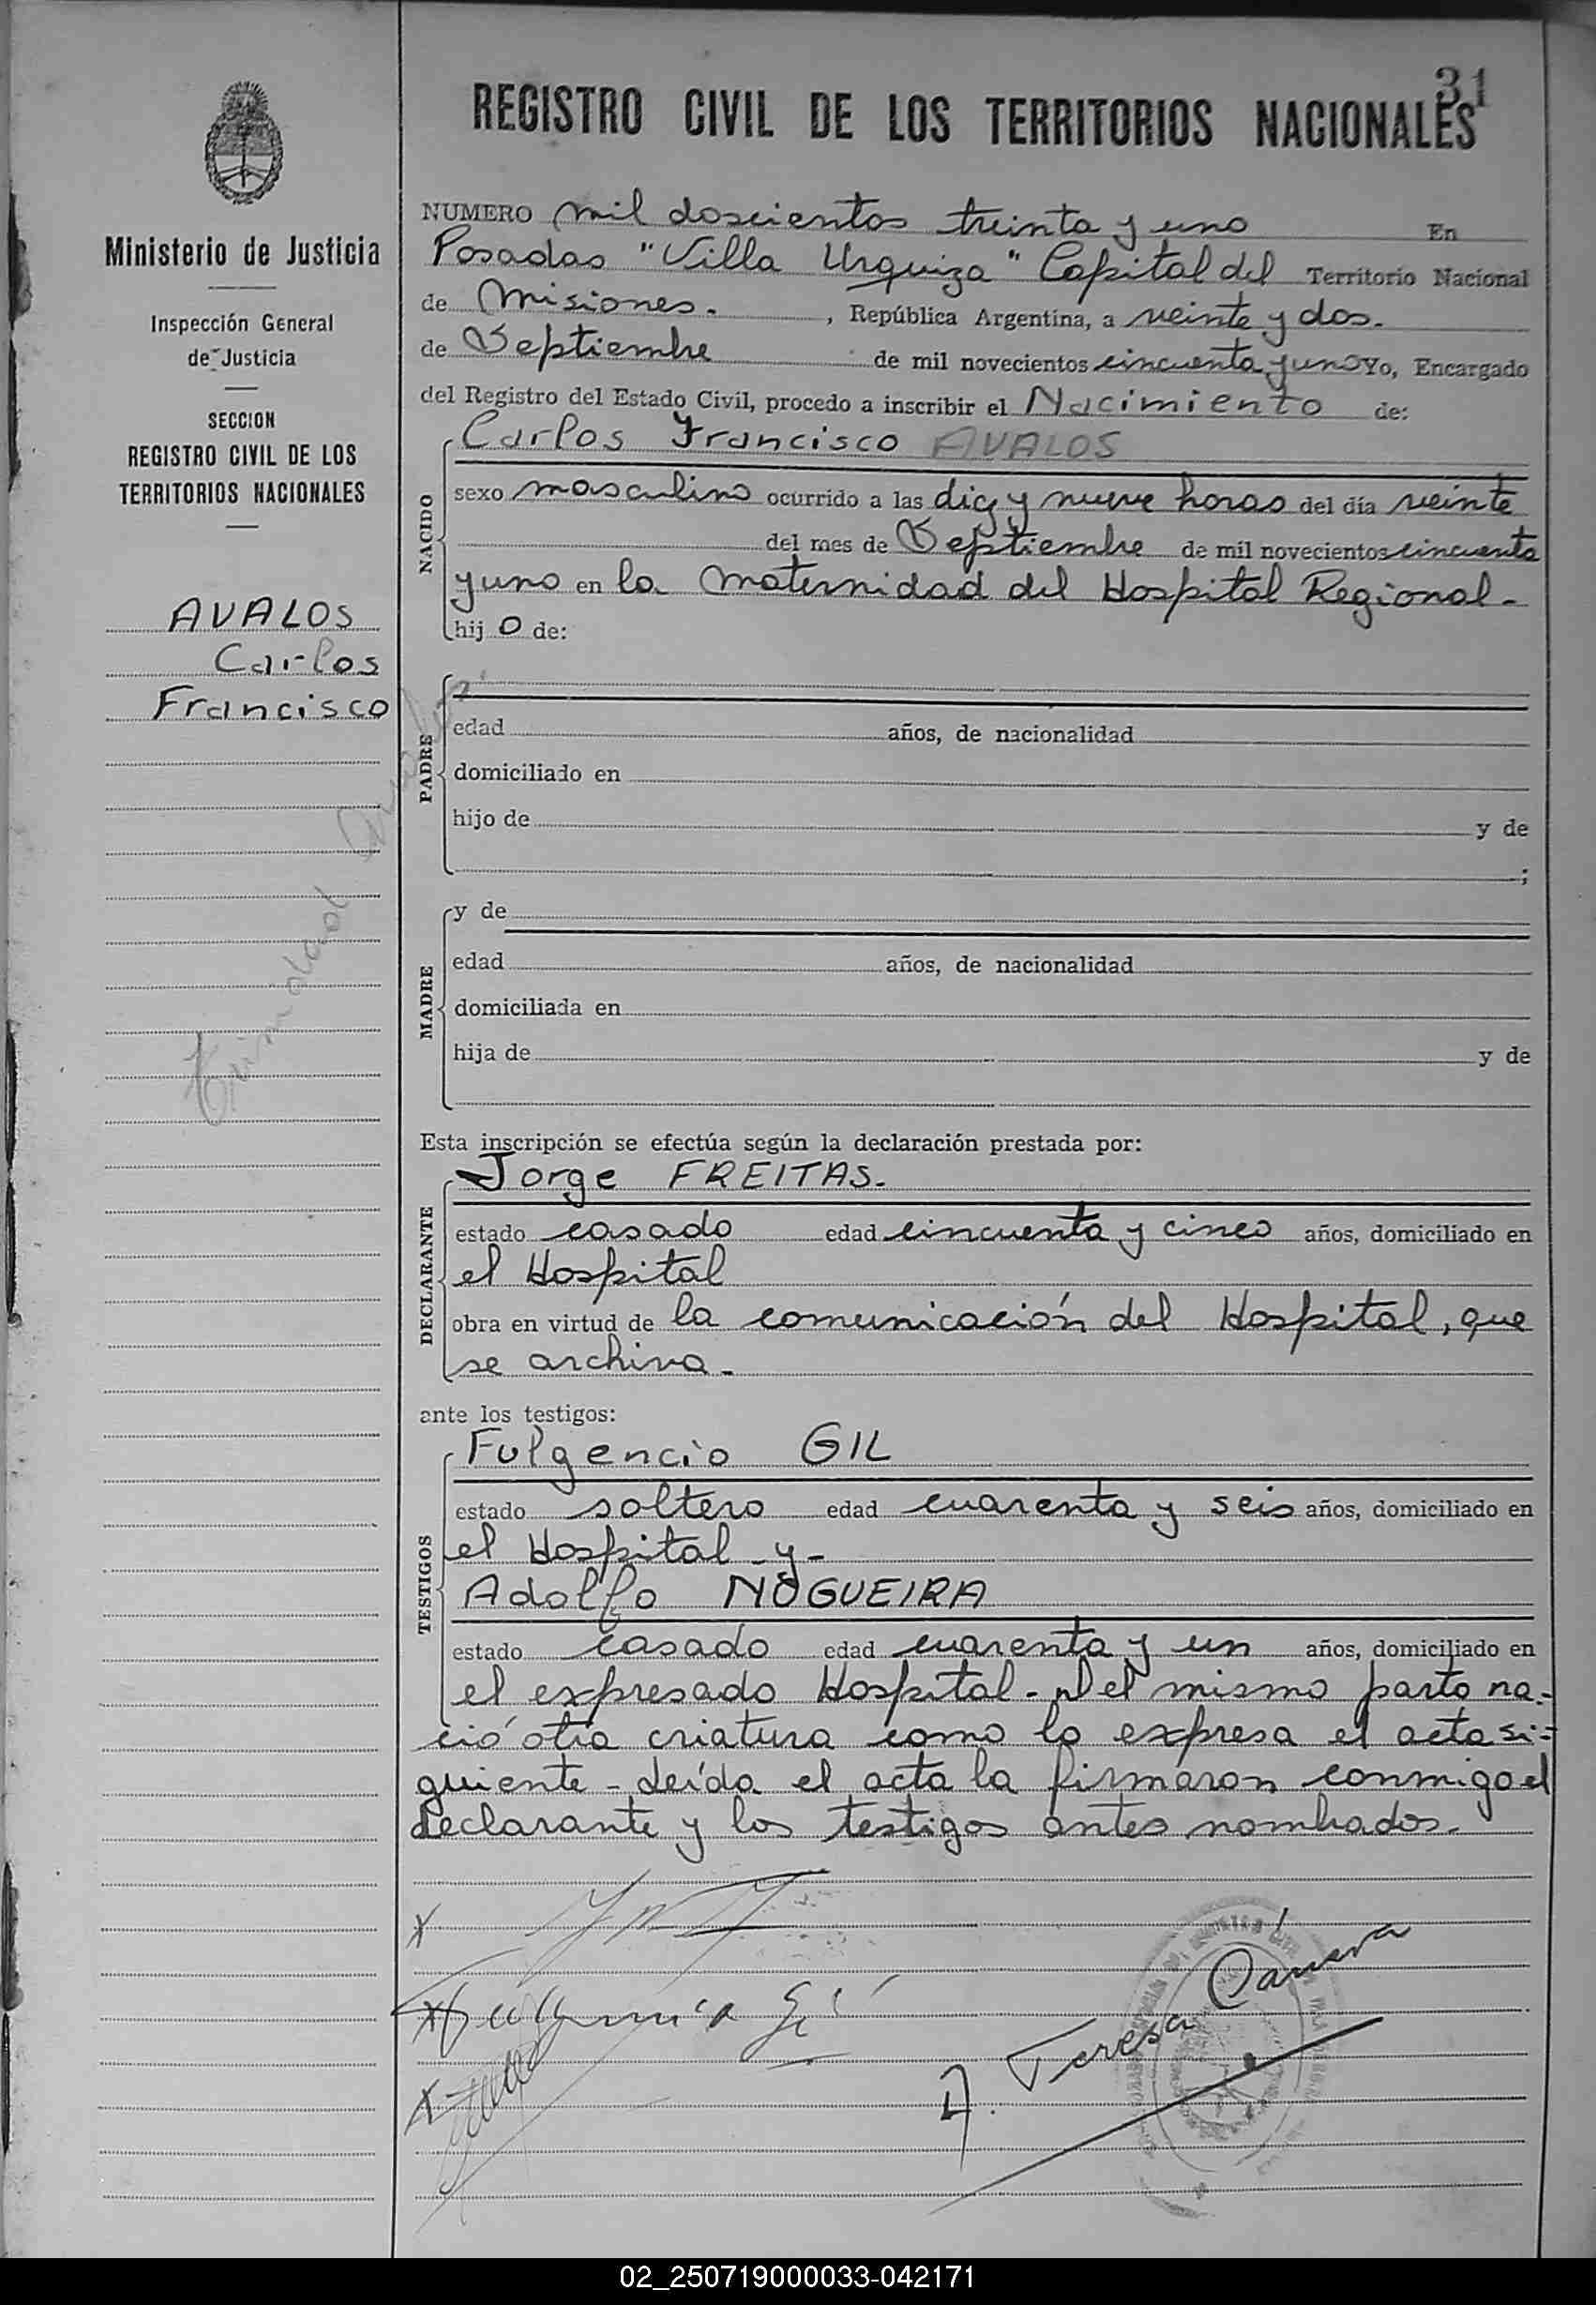 31
REGISTRO CIVIL DE LOS TERRITORIOS NACIONALES
Ministerio de Justicia
Inspección General
de Justicia
SECCION
REGISTRO CIVIL DE LOS
TERRITORIOS NACIONALES
AVALOS
Carlos
Francisco
Trinidad
NUMERO mil doscientos treinta y uno En
Posadas "Villa Urquiza" Capital del Territorio Nacional
de Misiones. , República Argentina, a veinte y dos.
de Septiembre de mil novecientos cincuenta y uno Yo, Encargado
del Registro del Estado Civil, procedo a inscribir el Nacimiento de:
NACIDO
Carlos Francisco AVALOS
sexo masculino ocurrido a las diez y nueve horas del día veinte
del mes de Septiembre de mil novecientos cincuenta
y uno en la Maternidad del Hospital Regional.-
hij o de:
PADRE
edad años, de nacionalidad
domiciliado en
hijo de y de
;
MADRE
y de
edad años, de nacionalidad
domiciliada en
hija de y de
Esta inscripción se efectúa según la declaración prestada por:
DECLARANTE
Jorge FREITAS.
estado casado edad cincuenta y cinco años, domiciliado en
el Hospital
obra en virtud de la comunicación del Hospital, que
se archiva.-
ante los testigos:
TESTIGOS
Fulgencio GIL
estado soltero edad cuarenta y seis años, domiciliado en
el Hospital -y-
Adolfo NOGUEIRA
estado casado edad cuarenta y un años, domiciliado en
el expresado Hospital.- Del mismo parto na-
ció otra criatura como lo expresa el acta si=
guiente - Leída el acta la firmaron conmigo el
declarante y los testigos antes nombrados.-
A. Teresa Cámera
02_250719000033-042171